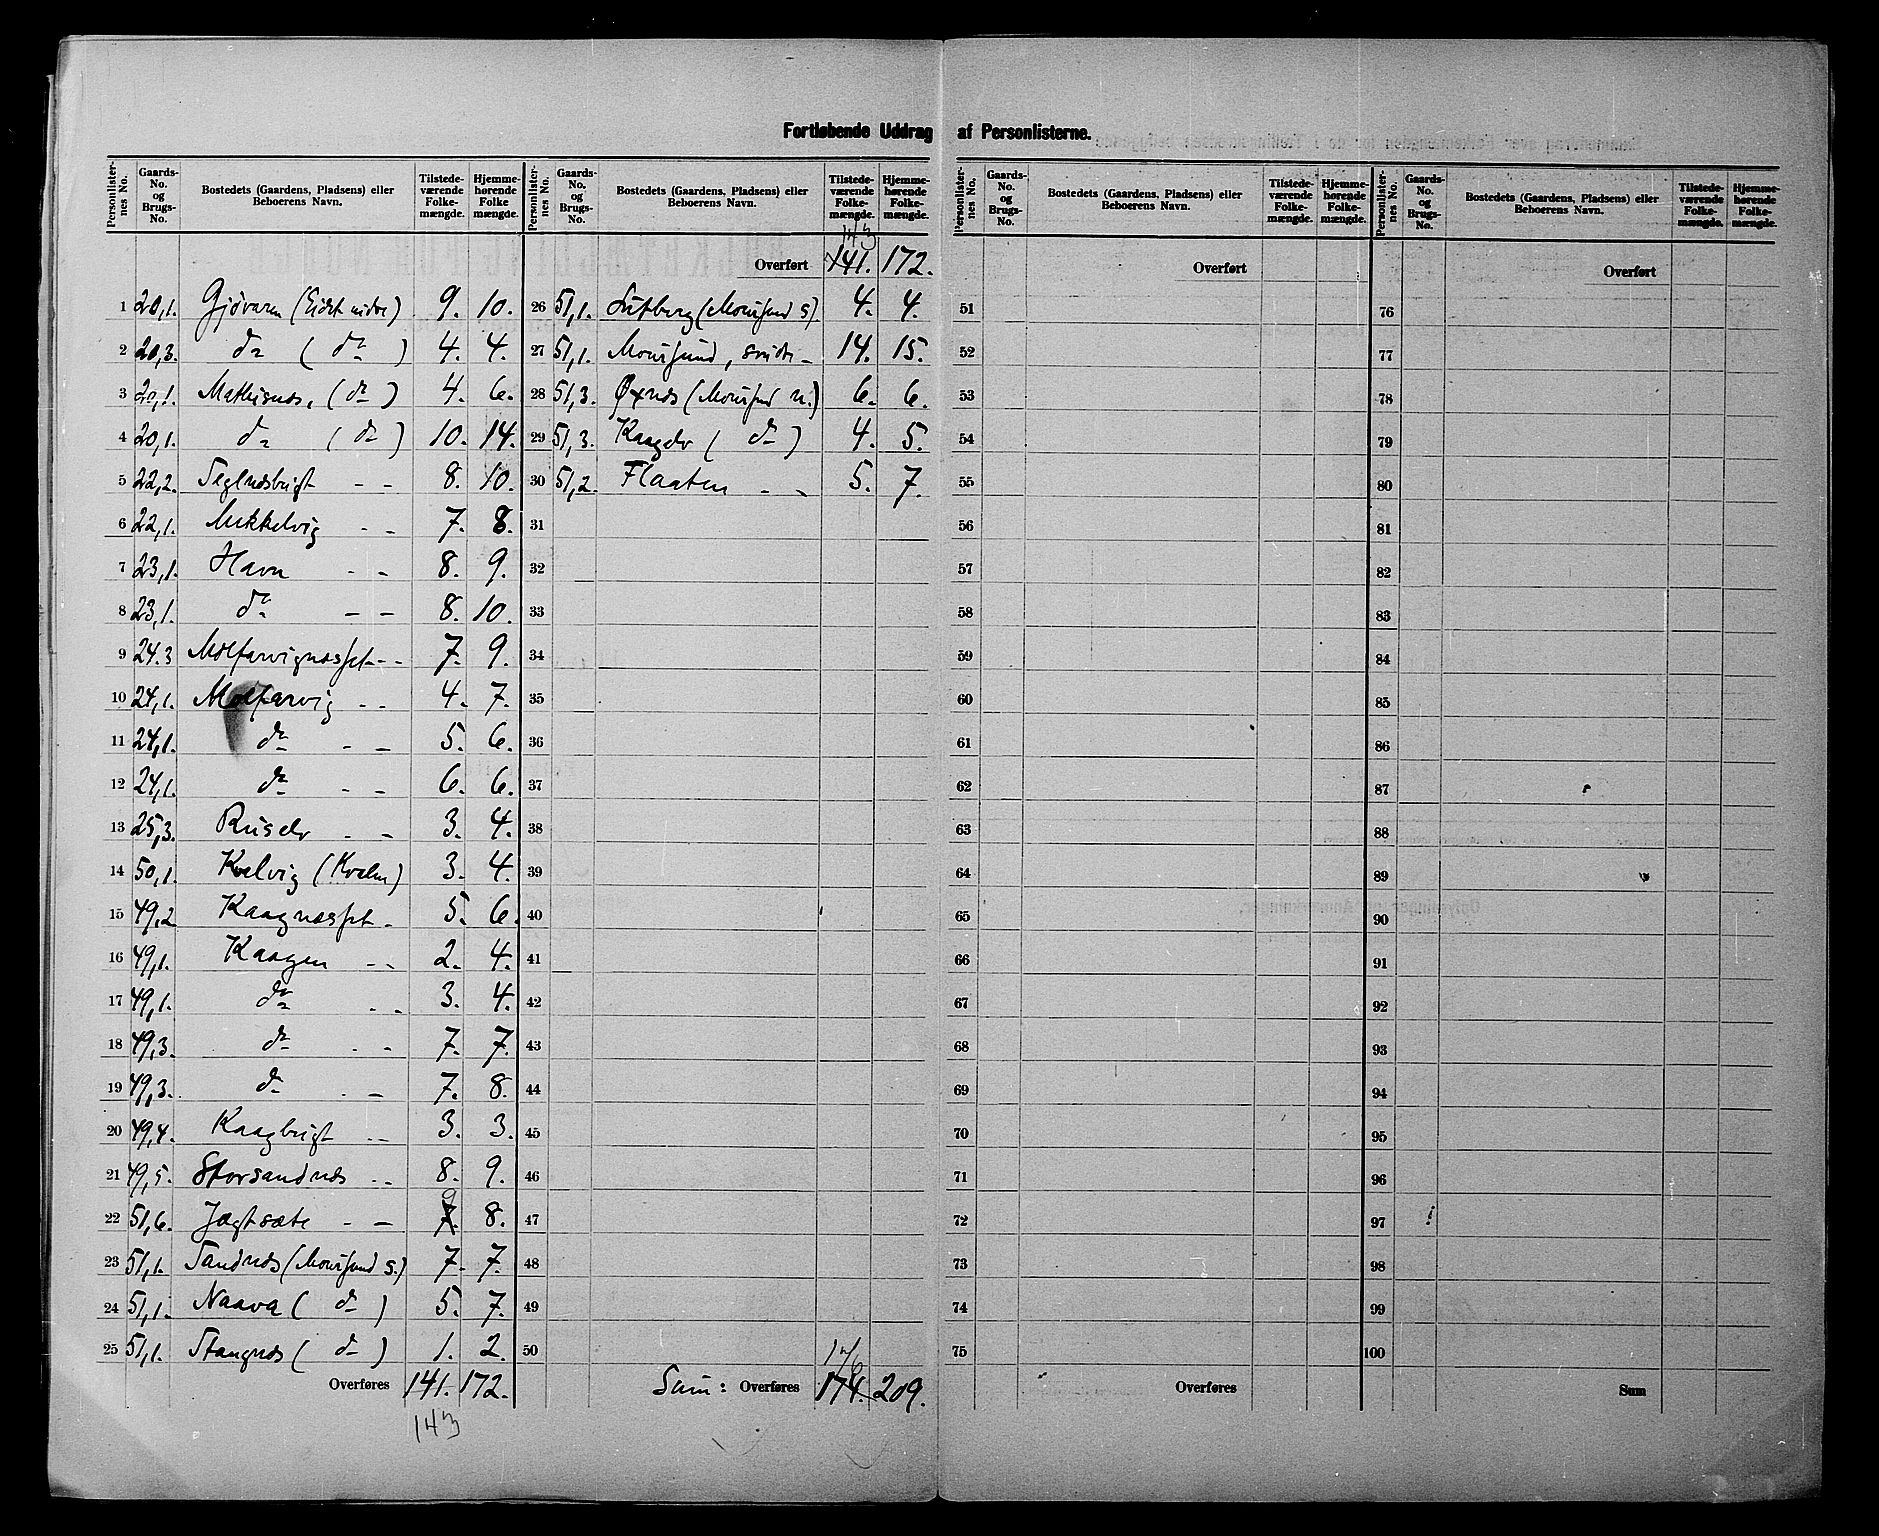 Fortløbende Uddrag af Personlisterne.
Personlister-nes No. | Gaards-No. og Brugs-No. | Bostedets (Gaardens, Pladsens) eller Beboerens Navn. | Tilstede-værende Folke-mængde. | Hjemme-hørende Folke mængde.
1 20,1. Gjøvaren (Eidet nidre) 9. 10.
2 20,3. do ( do ) 4. 4.
3 20,1. Mathisnæs, (do) 4. 6.
4 20,1. do (do) 10. 14.
5 22,2. Seglnæsbugt - - 8. 10.
6 22,1. Mikkelvig - - 7. 8.
7 23,1. Havn - - 8. 9.
8 23,1. do - - 8. 10.
9 24.3 Molfarvignæsset - - 7. 9.
10 24,1. Molfarvig - - 4. 7.
11 24,1. do - - 5. 6.
12 24,1. do - - 6. 6.
13 25,3. Ruselv - - 3. 4.
14 50,1. Kvalvig (Kvalen) 3. 4.
15 49,2 Kaagnæsset - 5. 6.
16 49,1. Kaagen - - 2. 4.
17 49,1. do - - 3. 4.
18 49,3. do - - 7. 7.
19 49,3. do - - 7. 8.
20 49,4. Kaagbugt - - 3. 3.
21 49,5. Storsandnæs - - 8. 9.
22 51,6. Jægtsæte - - 7. 9 8.
23 51,1. Sandnæs (Mourisund s.) 7. 7.
24 51,1. Naava ( do ) 5. 7.
25 51,1. Stangnæs ( do ) 1. 2.
Overføres 141. 172.
143
Personlister-nes No. | Gaards-No. og Brugs-No. | Bostedets (Gaardens, Pladsens) eller Beboerens Navn. | Tilstede-værende Folke-mængde. | Hjemme-hørende Folke-mængde.
143
Overført 141. 172.
26 51,1. (Mourisund s). 4. 4.
27 51,1. Mourisund, søndre - 14. 15.
28 51,3. Øxnæs (Mourisund n.) 6. 6.
29 51,3. Kaagelv ( do ) 4. 5.
30 51,2. Flaaten - - 5. 7.
31
32
33
34
35
36
37
38
39
40
41
42
43
44
45
46
47
48
49
50
176
Sum: Overføres 174. 209.
Personlister-nes No. | Gaards-No. og Brugs-No. | Bostedets (Gaardens, Pladsens) eller Beboerens Navn. | Tilstede-værende Folke-mængde. | Hjemme-hørende Folke-mængde.
Overført
51
52
53
54
55
56
57
58
59
60
61
62
63
64
65
66
67
68
69
70
71
72
73
74
75
Overføres
Personlister-nes No. | Gaards-No. og Brugs-No. | Bostedets (Gaardens, Pladsens) eller Beboerens Navn. | Tilstede-værende Folke-mængde. | Hjemme-hørende Folke-mængde.
Overført
76
77
78
79
80
81
82
83
84
85
86
87
88
89
90
91
92
93
94
95
96
97
98
99
100
Sum